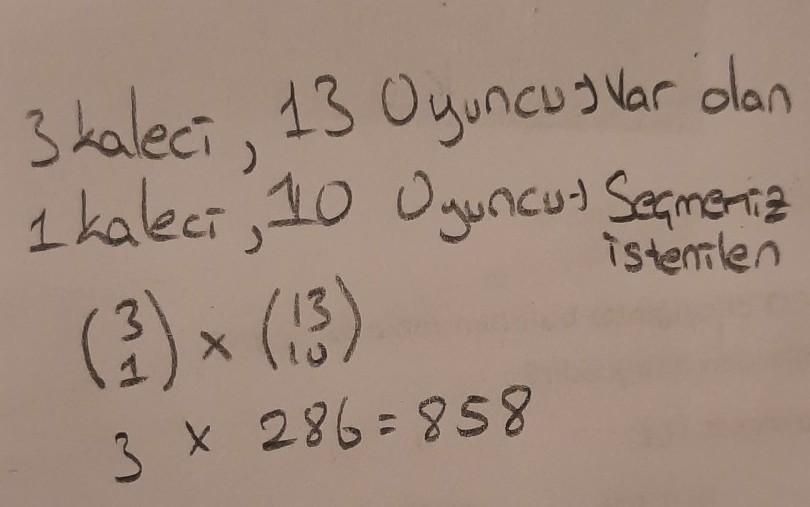 3 kaleci, 13 Oyuncu → Var olan
1 kaleci, 10 Oyuncu → Seçmemiz
istenilen
(3 1) × (13 10)
3 × 286 = 858